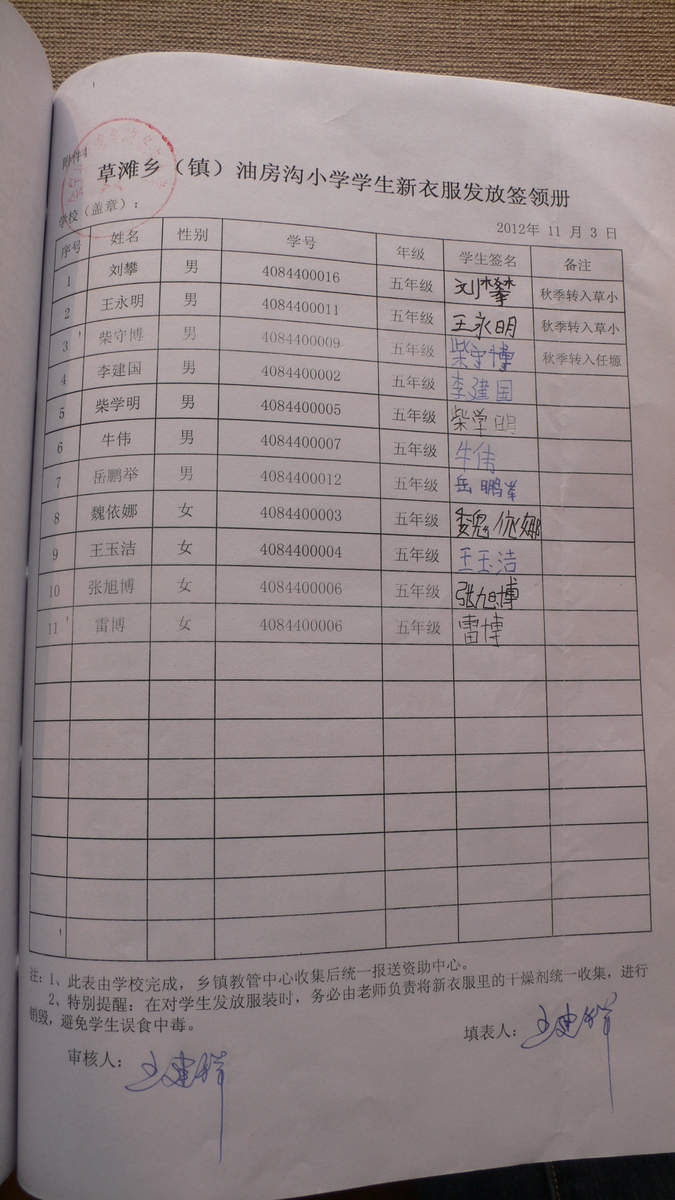 附件4
草滩乡（镇）油房沟小学学生新衣服发放签领册
学校（盖章）：
2012年 11 月 3 日
序号 姓名 性别 学号 年级 学生签名 备注
1 刘攀 男 4084400016 五年级 刘攀 秋季转入草小
2 王永明 男 4084400011 五年级 王永明 秋季转入草小
3 柴守博 男 4084400009 五年级 柴守博 秋季转入任塬
4 李建国 男 4084400002 五年级 李建国
5 柴学明 男 4084400005 五年级 柴学明
6 牛伟 男 4084400007 五年级 牛伟
7 岳鹏举 男 4084400012 五年级 岳鹏举
8 魏依娜 女 4084400003 五年级 魏依娜
9 王玉洁 女 4084400004 五年级 王玉洁
10 张旭博 女 4084400006 五年级 张旭博
11 雷博 女 4084400006 五年级 雷博
注：1、此表由学校完成，乡镇教管中心收集后统一报送资助中心。
2、特别提醒：在对学生发放服装时，务必由老师负责将新衣服里的干燥剂统一收集，进行
销毁，避免学生误食中毒。
填表人：王建祥
审核人：王建祥